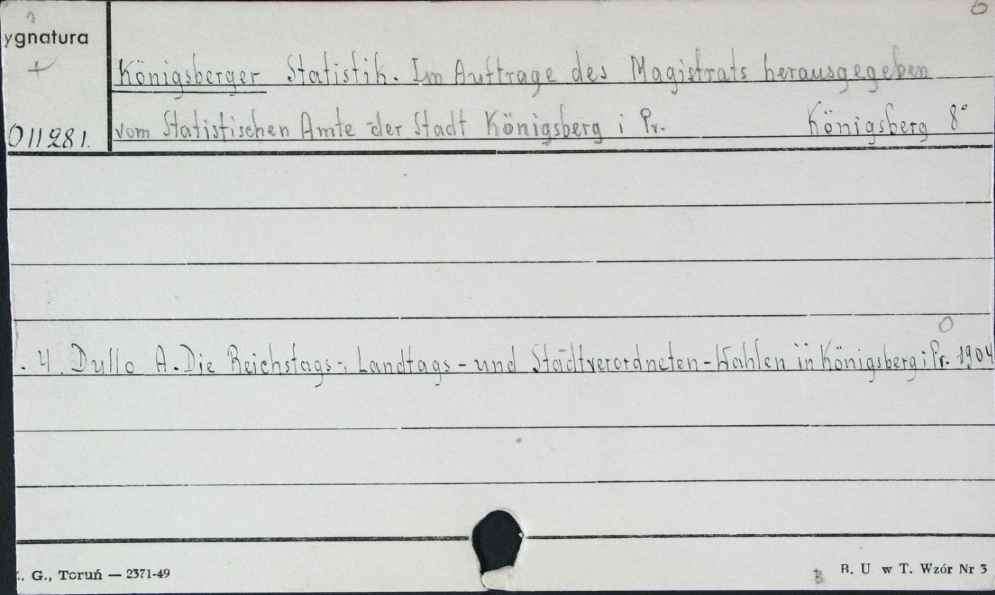 6
ygnatura
+
Königsberger Statistik. Im Auftrage des Magistrats herausgegeben
011281. vom Statistischen Amte der Stadt Königsberg i Pr. Königsberg 8°
0
. 4. Dullo A. Die Reichstags-, Landtags- und Stadtverordneten-Wahlen in Königsberg i Pr. 1904
. G., Toruń — 2371-49
B. U w T. Wzór Nr 3